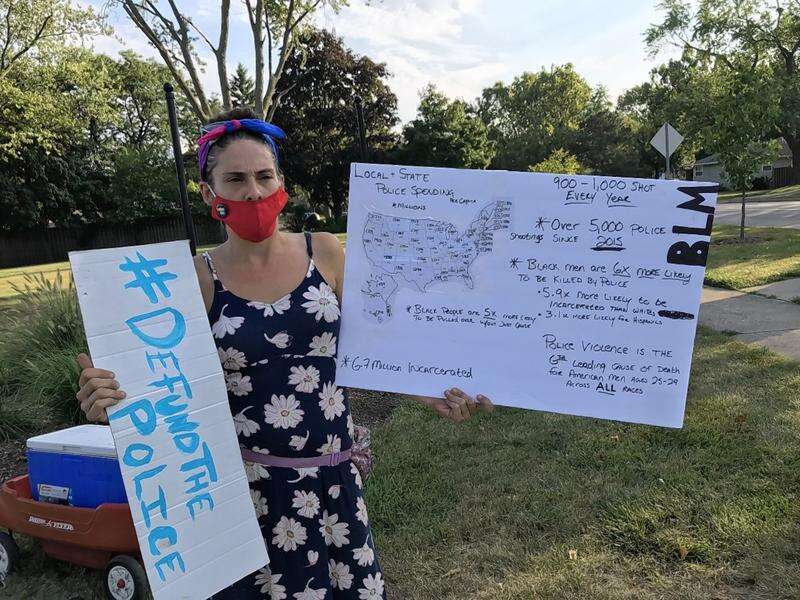 #DEFUND THE
POLICE
LOCAL + STATE
POLICE SPENDING
PER CAPITA
*MILLIONS
900 - 1,000 SHOT
EVERY YEAR
BLM
* OVER 5,000 POLICE
Shootings SINCE 2015
* BLACK MEN ARE 6X MORE LIKELY
TO BE KILLED BY POLICE
• 5.9x MORE LIKELY TO BE
INCARCERATED THAN WHITES
• 3.1x MORE LIKELY FOR HISPANICS
* BLACK PEOPLE ARE 5X MORE LIKELY
TO BE PULLED OVER JUST CAUSE
POLICE VIOLENCE IS THE
6TH LEADING CAUSE OF DEATH
FOR AMERICAN MEN AGES 25-29
ACROSS ALL RACES
*6.7 MILLION INCARCERATED